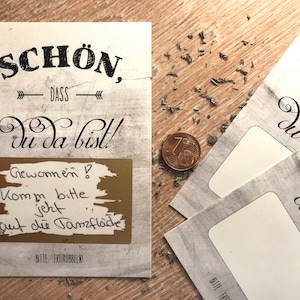 SCHÖN,
DASS
du da bist!
Gewonnen!
Komm bitte
jetzt
auf die Tanzfläche
BITTE FREIRUBBELN!
du
1
BITTE